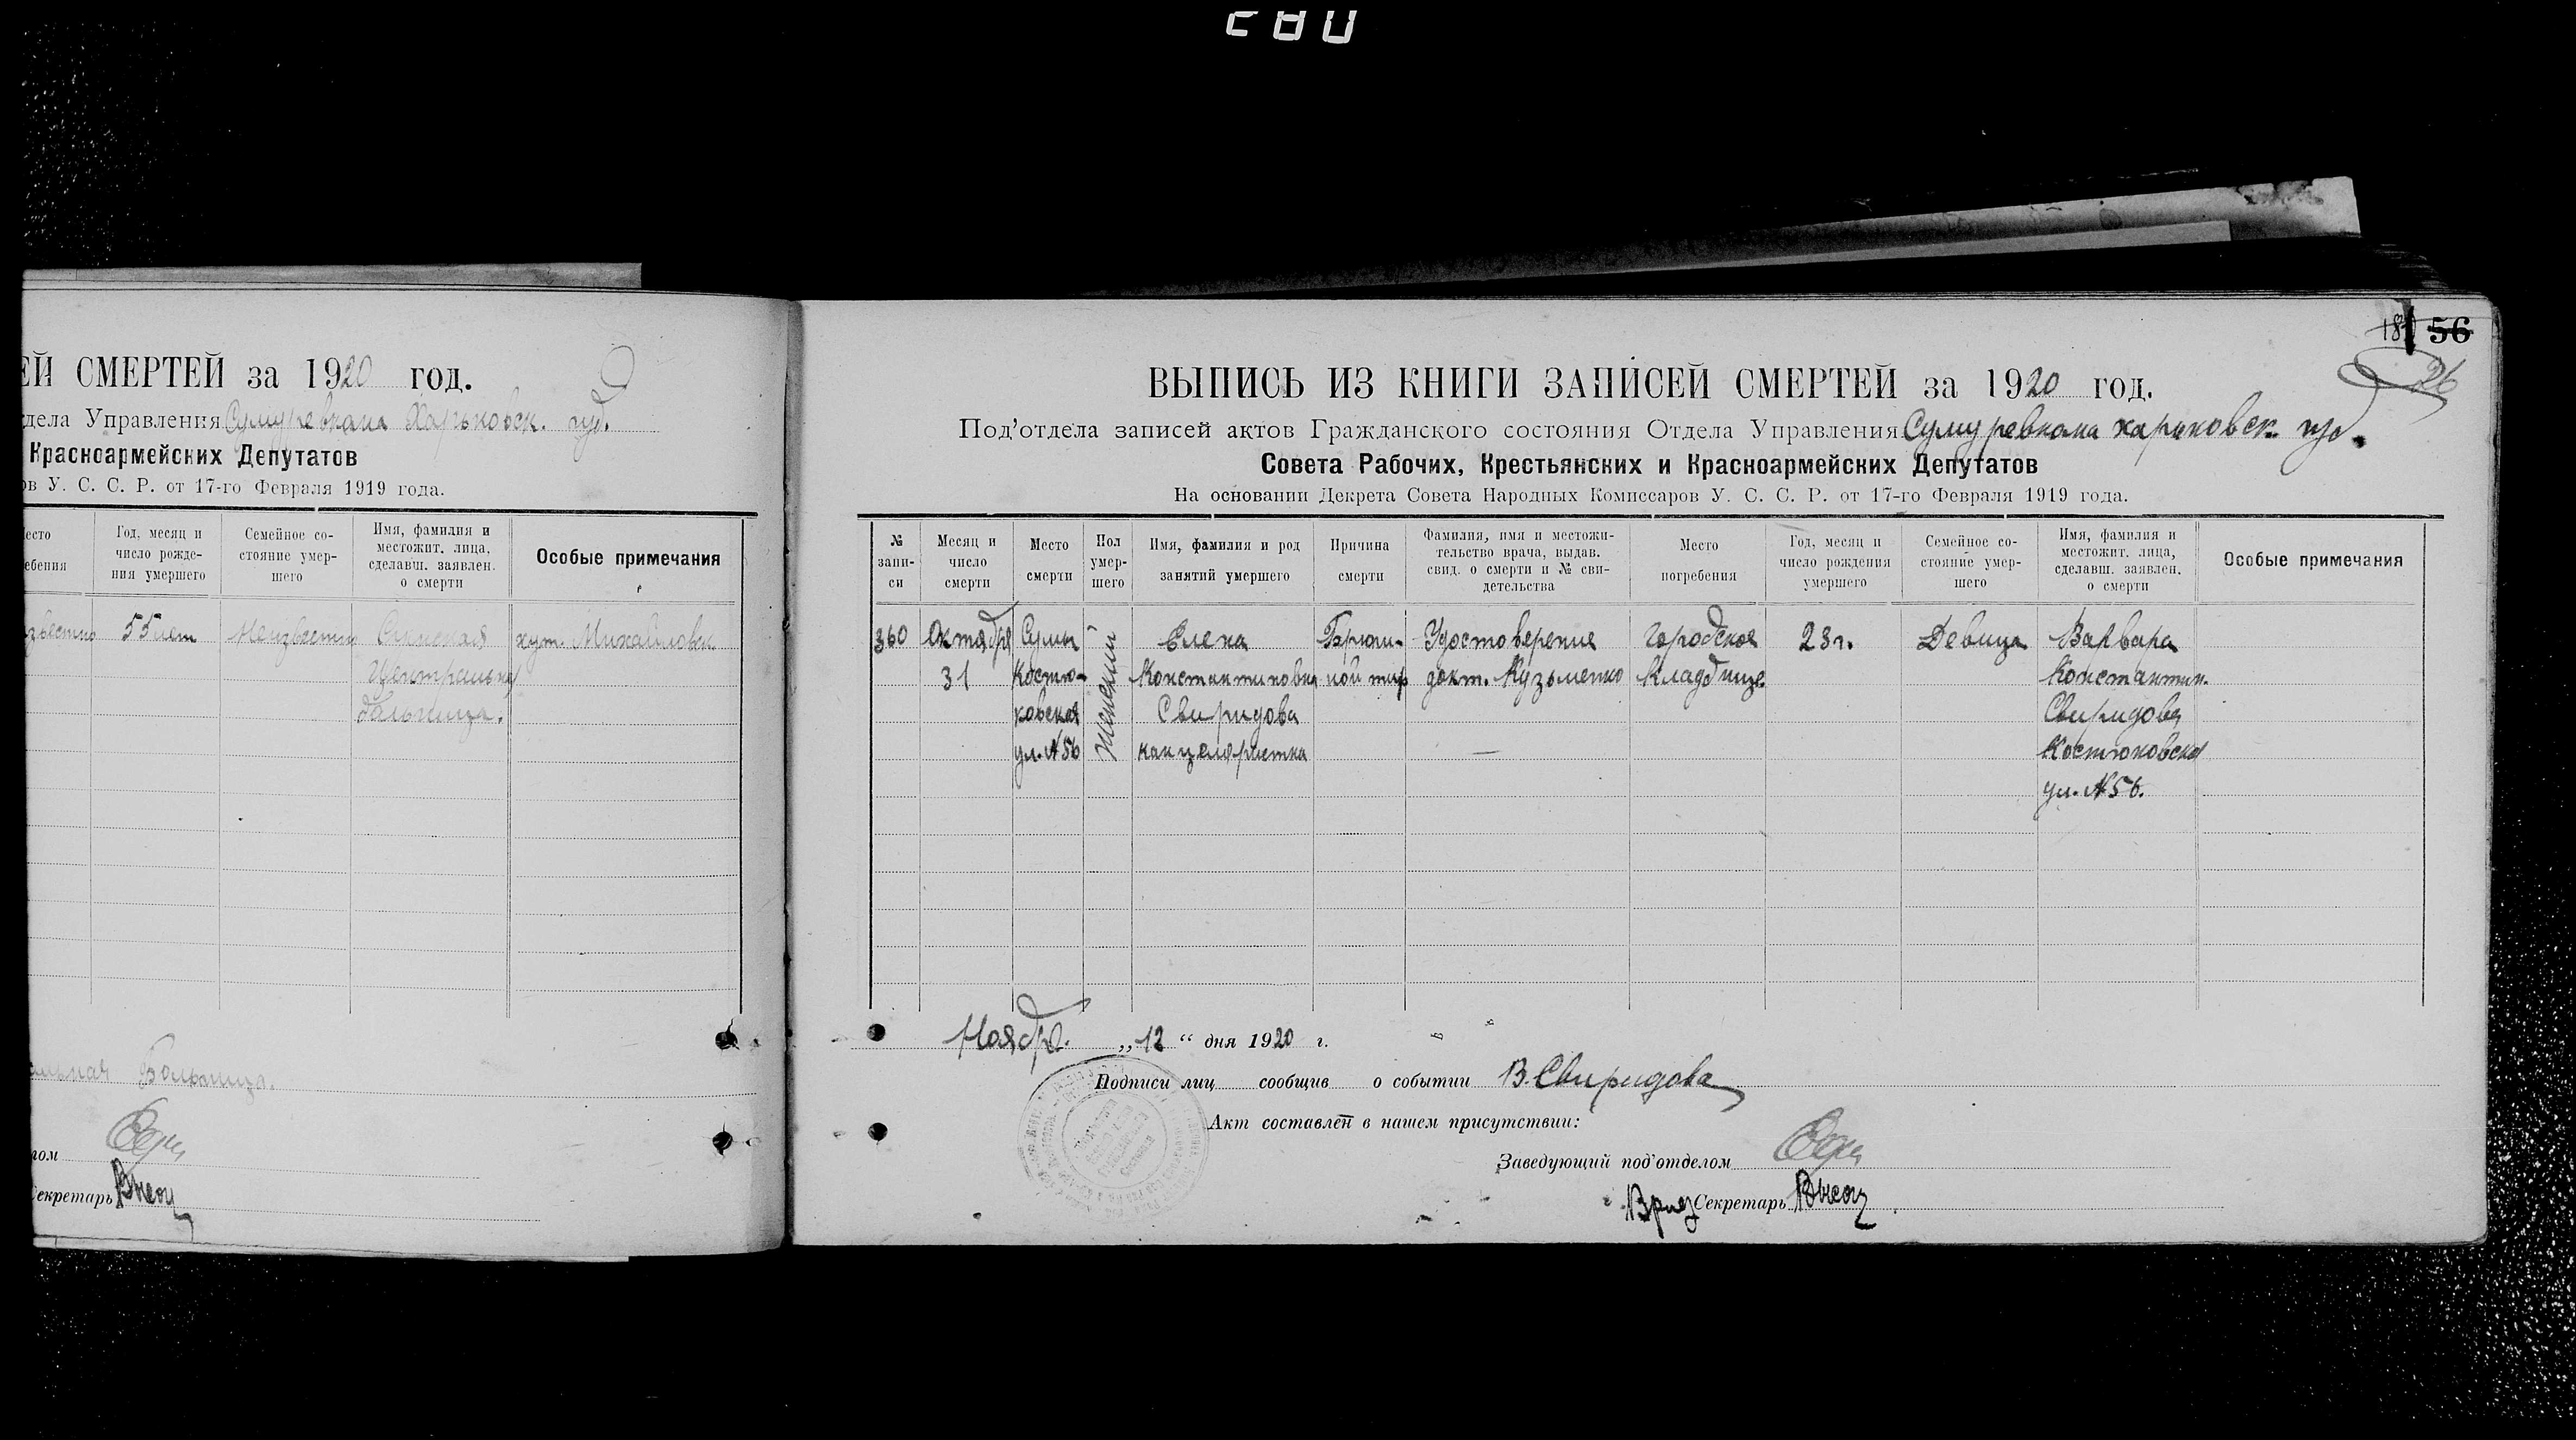 280
ЕЙ СМЕРТЕЙ за 1920 год.
дела Управления Сумуревкома Харьковск. губ.
Красноармейских Депутатов
ов У. С. С. Р. от 17-го Февраля 1919 года.
есто
ебения
Год, месяц и
число рожде-
ния умершего
Семейное со-
стояние умер-
шего
Имя, фамилия и
местожит. лица,
сделавш. заявлен.
о смерти
Особые примечания
звестно 55 лет Неизвестно Сумская хут. Михайловск.
Центральная
больница.
альная Больница.
лом
Секретарь
56
26
ВЫПИСЬ ИЗ КНИГИ ЗАПИСЕЙ СМЕРТЕЙ за 1920 год.
Под'отдела записей актов Гражданского состояния Отдела Управления Сумуревкома харьковск. губ.
Совета Рабочих, Крестьянских и Красноармейских Депутатов
На основании Декрета Совета Народных Комиссаров У. С. С. Р. от 17-го Февраля 1919 года.
№
запи-
си
Месяц и
число
смерти
Место
смерти
Пол
умер-
шего
Имя, фамилия и род
занятий умершего
Причина
смерти
Фамилия, имя и местожи-
тельство врача, выдав.
свид. о смерти и № сви-
детельства
Место
погребения
Год, месяц и
число рождения
умершего
Семейное со-
стояние умер-
шего
Имя, фамилия и
местожит. лица,
сделавш. заявлен.
о смерти
Особые примечания
360 Октября Сумы Женский Елена Брюш- Удостоверение Городское 23 г. Девица Варвара
31 Костю- Константиновна ной тиф докт. Кузьменко кладбище Константин.
ковская Свиридова Свиридова
ул. №56 канцеляристка — Костюковская
ул. №56.
Ноябр. „12“ дня 1920 г.
Подписи лиц сообщив о событии В. Свиридова
Акт составлен в нашем присутствии:
Заведующий под'отделом
Врид Секретарь